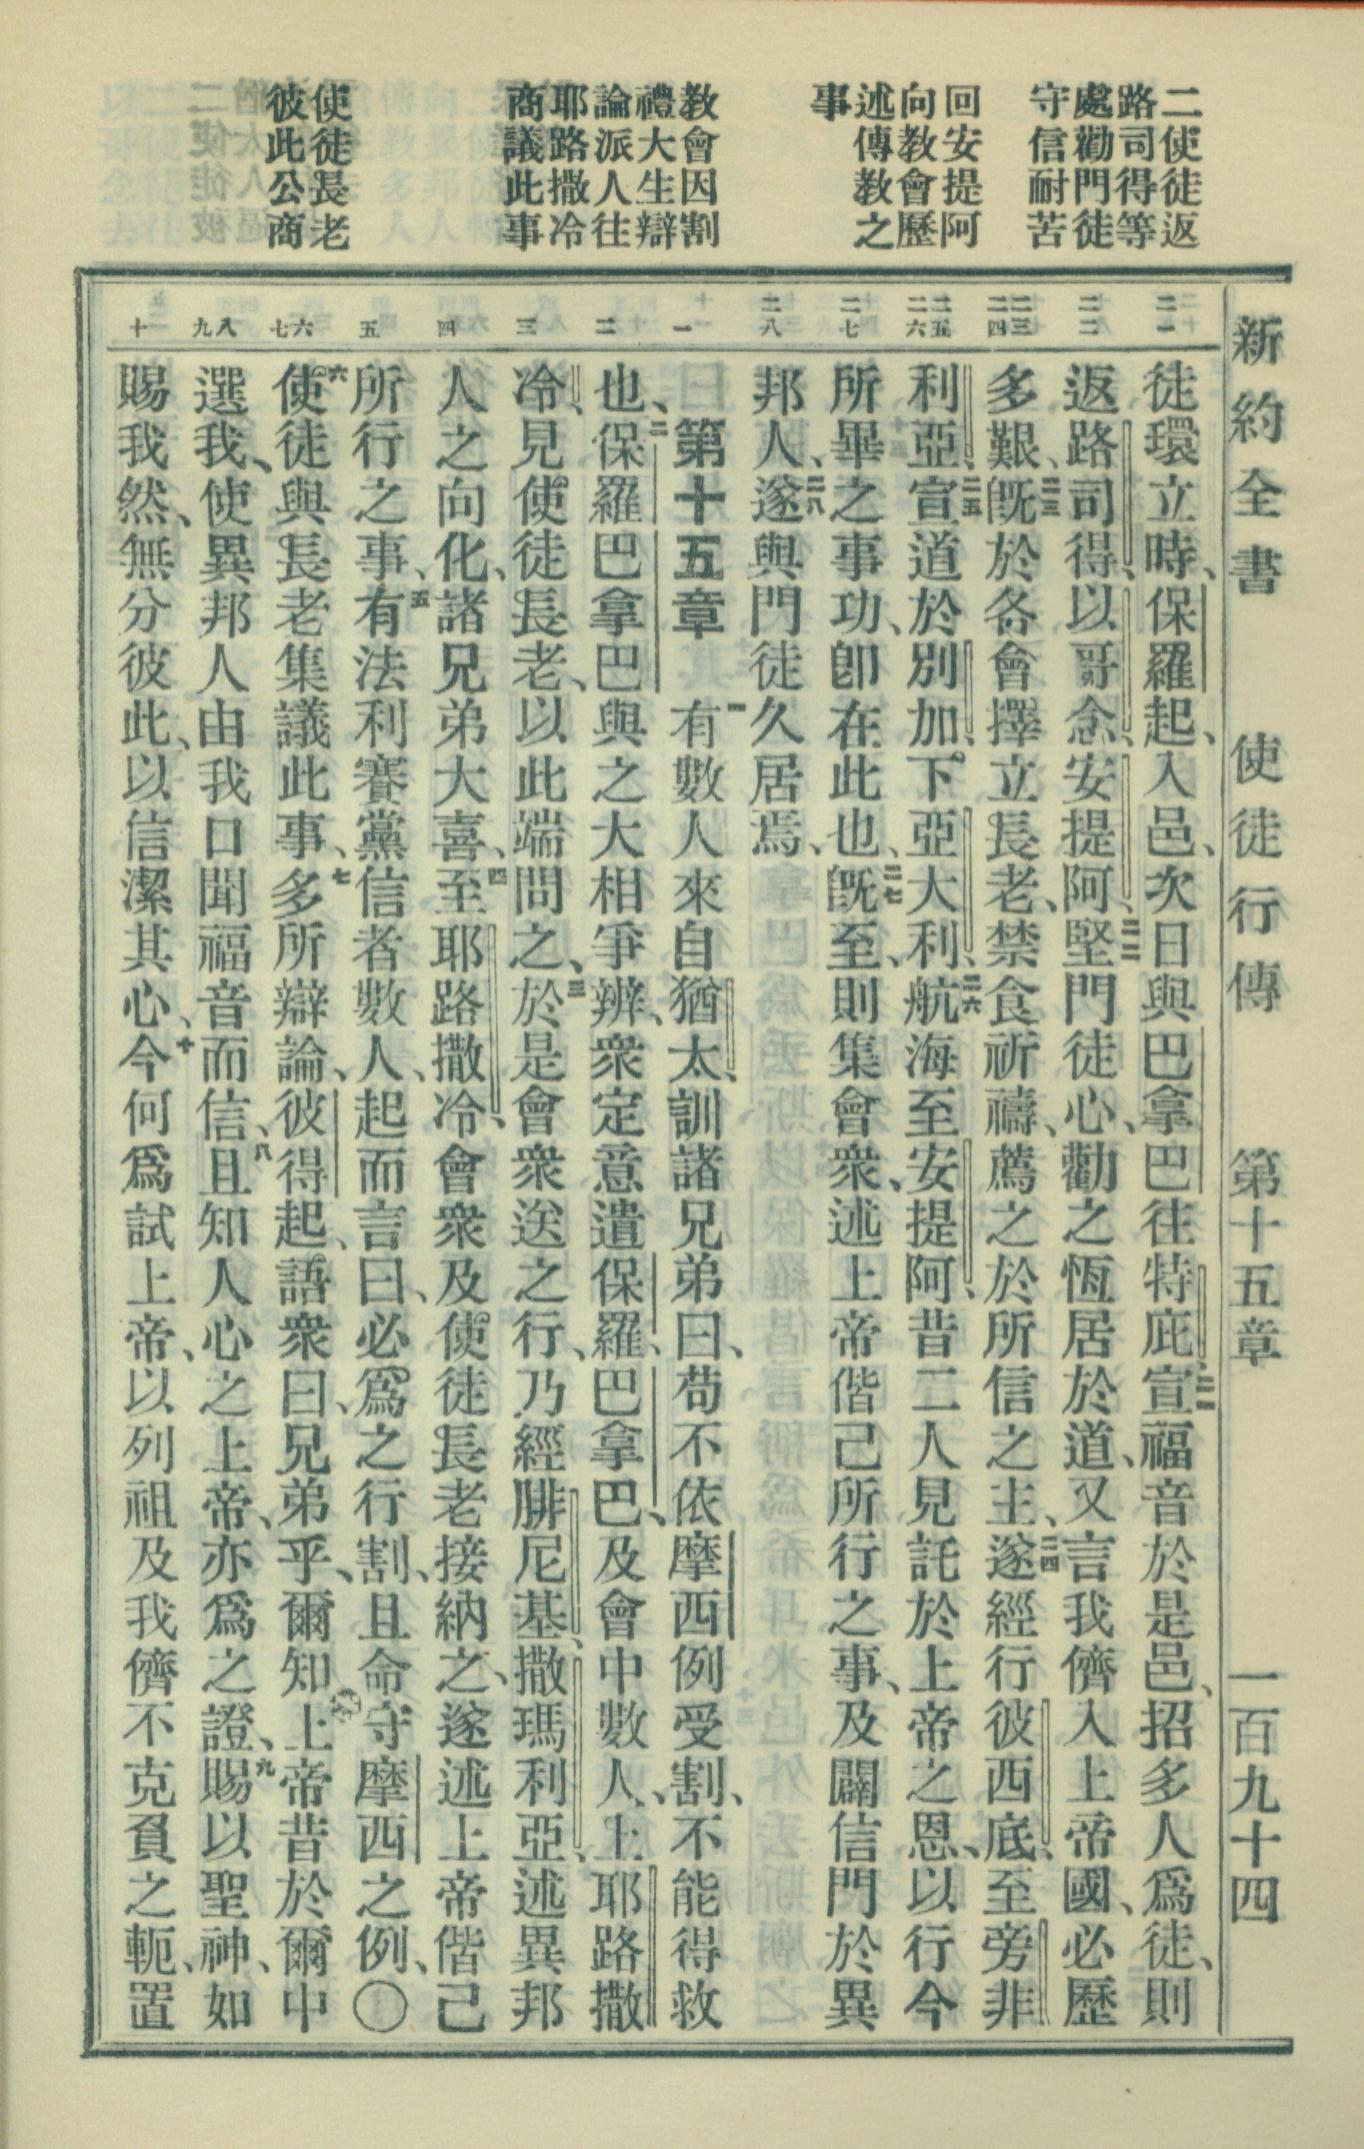 新約全書　使徒行傳　第十五章　一百九十四
二使徒返
路司得等
處勸門徒
守信耐苦
回安提阿
向教會歷
述傳教之
事
教會因割
禮大生辯
論派人往
耶路撒冷
商議此事
使徒長老
彼此公商
二一
二二
二三
二四
二五
二六
二七
二八
一
二
三
四
五
六
七
八
九
十
徒環立時、保羅起、入邑、次日與巴拿巴往特庇、二一宣福音於是邑、招多人爲徒、則
返路司得、以哥念、安提阿、二二堅門徒心、勸之恆居於道、又言我儕入上帝國、必歷
多艱、二三旣於各會擇立長老、禁食祈禱、薦之於所信之主、二四遂經行彼西底、至旁非
利亞、二五宣道於別加、下亞大利、二六航海至安提阿、昔二人見託於上帝之恩、以行今
所畢之事功、卽在此也、二七旣至、則集會衆、述上帝偕己所行之事、及闢信門於異
邦人、二八遂與門徒久居焉、
第十五章　一有數人來自猶太、訓諸兄弟曰、苟不依摩西例受割、不能得救
也、二保羅巴拿巴與之大相爭辨、衆定意遣保羅、巴拿巴、及會中數人、上耶路撒
冷、見使徒長老、以此端問之、三於是會衆送之行、乃經腓尼基、撒瑪利亞、述異邦
人之向化、諸兄弟大喜、四至耶路撒冷、會衆及使徒長老接納之、遂述上帝偕己
所行之事、五有法利賽黨信者數人、起而言曰、必爲之行割、且命守摩西之例、〇
六使徒與長老集議此事、七多所辯論、彼得起、語衆曰、兄弟乎、爾知上帝昔於爾中
選我、使異邦人由我口聞福音而信、八且知人心之上帝、亦爲之證、九賜以聖神、如
賜我然、無分彼此、以信潔其心、十今何爲試上帝、以列祖及我儕不克負之軛、置